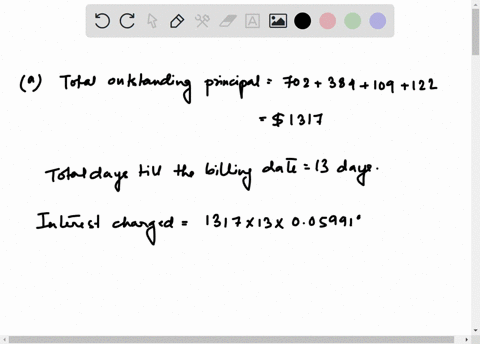 (a) Total outstanding principal = 702 + 384 + 109 + 122
= $ 1317
Total days till the billing date = 13 days.
Interest charged = 1317 x 13 x 0.05991